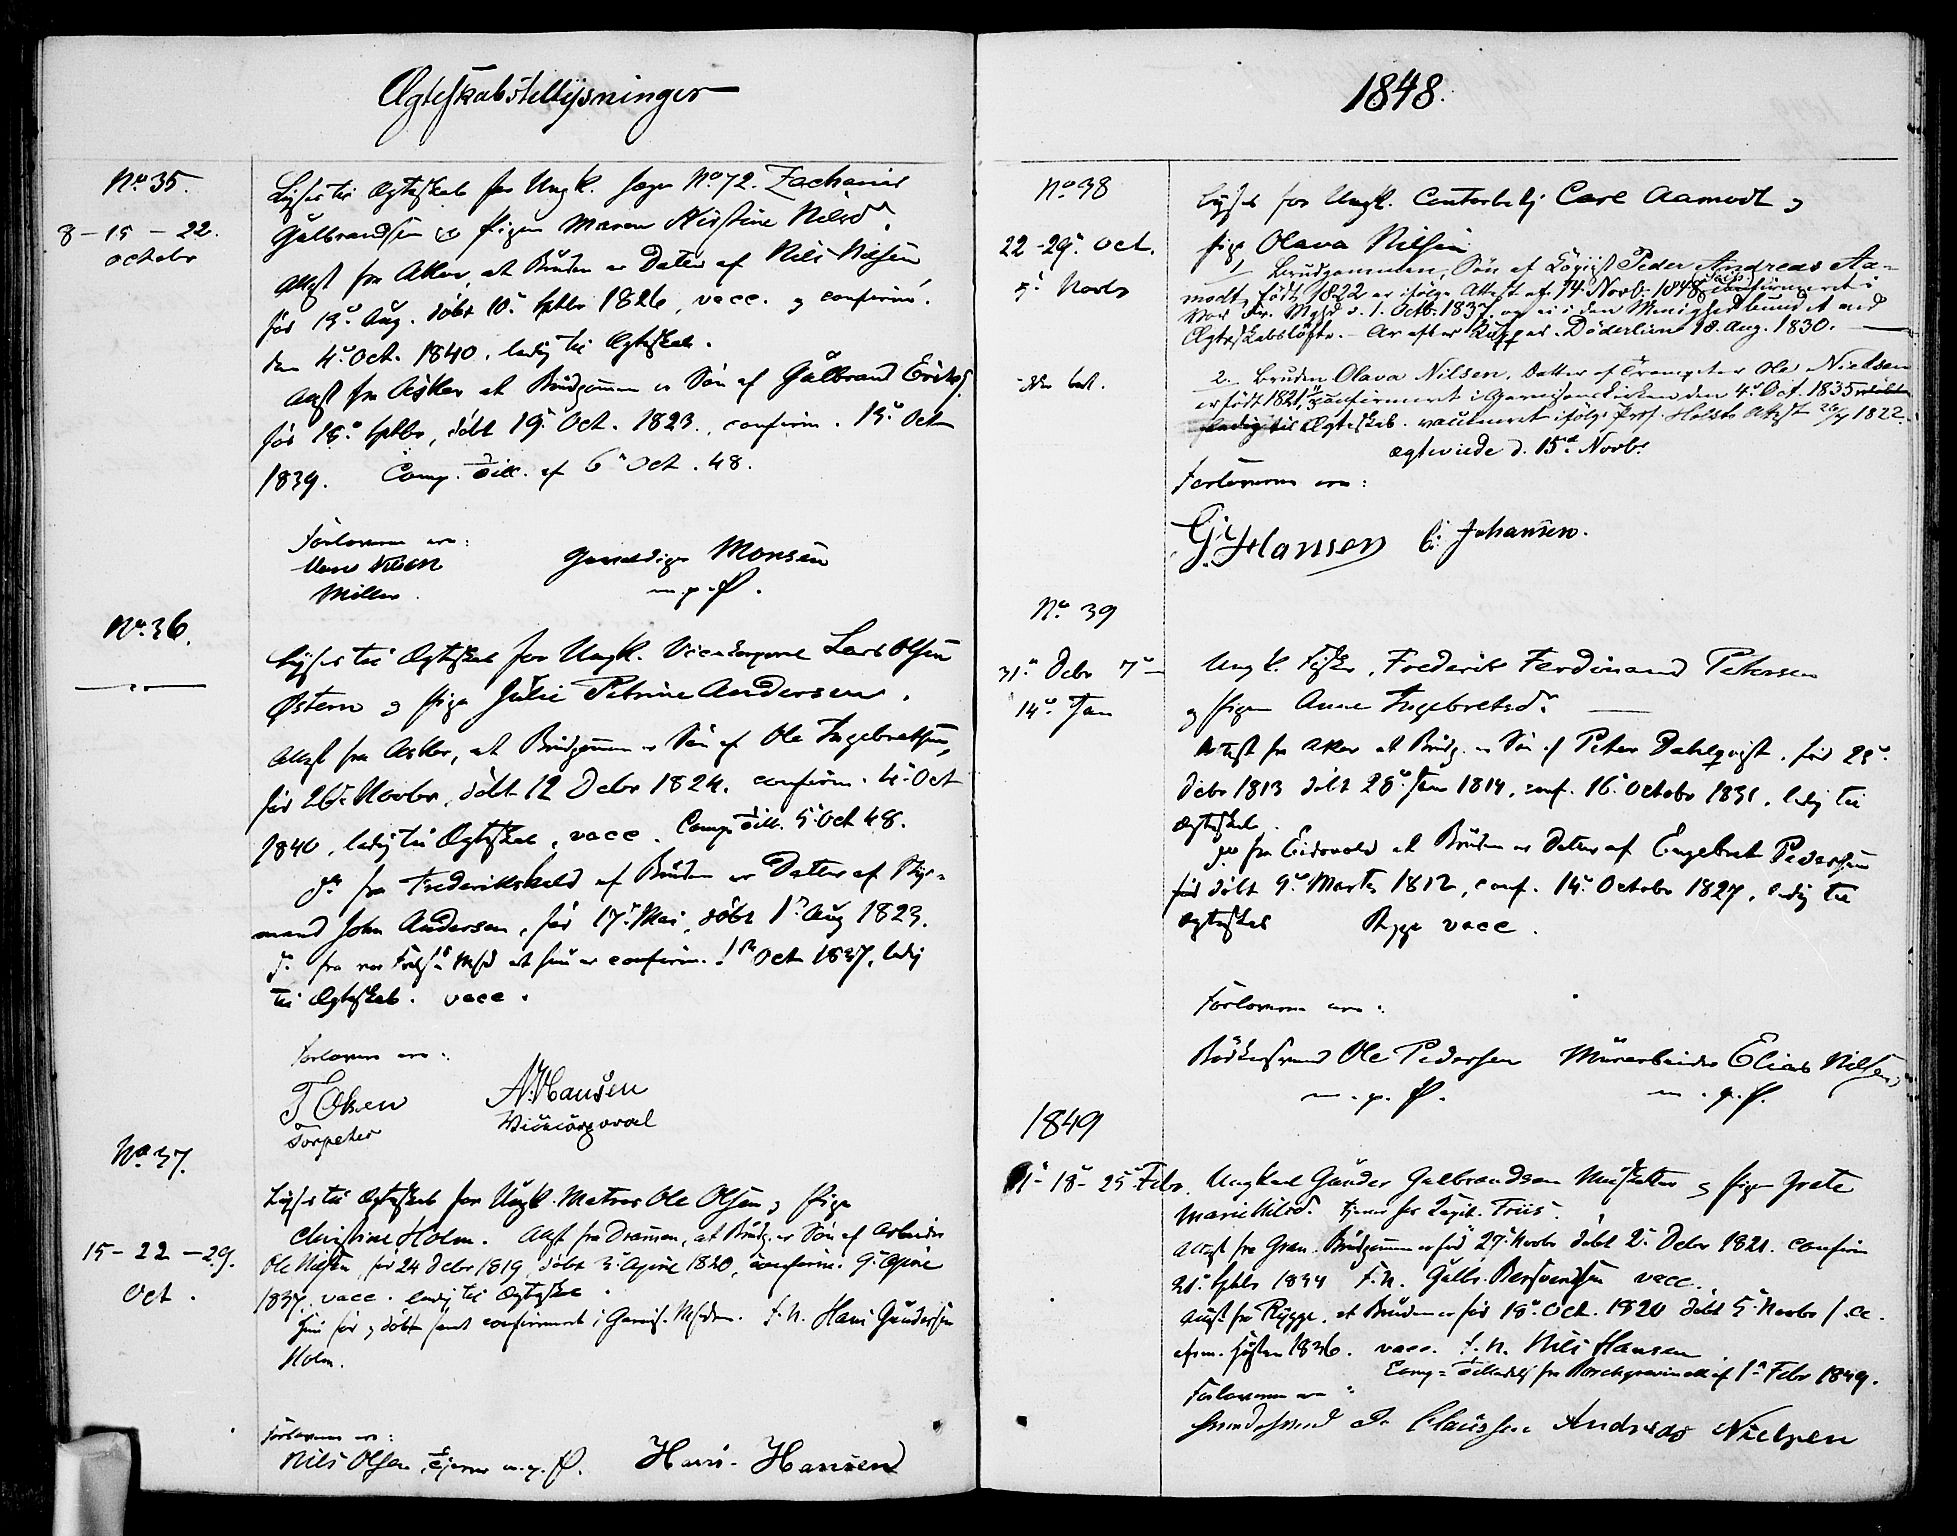 Ægteskabstillysninger
No 35.
8 - 15 - 22.
octobr
Lyses til Ægteskab for Ungk. Jæger No 72. Zacharias
Gulbrandsen og Pigen Maren Kirstine Nilsd.
Attest fra Aker, at Bruden er Datter af Nils Nilsen,
fød 13 Aug. døbt 10 Septbr 1826, vacc. og confirm.
den 4 Oct. 1840. ledig til Ægteskab.
Attest fra Asker at Brudgommen er Søn af Gulbrand Erichs.
fød 18 Septbr, døbt 19 Oct. 1823, confirm. 13 Oct
1839. Comp. Till. af 6 Oct. 48.
Forlovere ere:
Møller.
Monsen
m. p. P.
No. 36.
Lyses til Ægteskab for Ungk. Vicecorporal Lars Olsen
Østern og Pige Julie Petrine Andersen.
Attest fra Asker, at Brudgommen er Søn af Ole Ingebretsen,
fød 26 Novbr, døbt 12 Debr 1824. confirm. 4 Oct
1840, ledig til Ægteskab, vacc. Comp Till. 5 Oct 48.
Do fra Frederikshald at Bruden er Datter af
mand John Andersen, fød 17 Mai, døbt 1 Aug 1823.
Do fra vor Frels. Mhd at hun er confirm. 1 Oct 1837, ledig
til Ægteskab. vacc.
Forlovere ere:
T Olsen
A. Hansen
Vicecorporal
No 37.
15 - 22 - 29.
Oct.
Lyses til Ægteskab for Ungk. Matros Ole Olsen og Pige
Christine Holm. Attest fra Drammen, at Brudg. er Søn af Arbeider
Ole Nilsen, fød 24 Debr 1819, døbt 3 April 1820, confirm. 9 April
1837. vacc. ledig til Ægteskab.
Hun fød og døbt samt confirmeret i Garnis. Mhden. F. N. Hans Gundersen
Holm.
Forlovere ere:
Nils Olsen, m. p. P.
Hans Hansen
1848.
No 38
22 - 29 Oct.
5 Novbr
Lyses for Ungk. Contorbetj Carl Aamodt og
Pige Olava Nilsen
1, Brudgommen, Søn af Peder Andreas Aa-
modt, født 1822 er ifølge Attest af 14. Novb. 1848 confirmeret i
Vor Fr. Mghd d. 1. Octb. 1837, og ei i den Menighed bundet ved
Ægteskabsløfte. - Döderlein 18. Aug. 1830.
2. Bruden Olava Nilsen, Datter af Trompeter Ole Nielsen
er født 1821, confirmeret i Garnisonskirken den 4 Oct. 1835
ledig til Ægteskab. vaccineret ifølge Prof. Holsts Attest 1822.
ægteviede d. 15 Novb.
Forloverne ere:
G. Hansen
C. Johansen.
No 39
31 Debr 7 -
14 Jan
Ungk. Fisker, Frederik Ferdinand Petersen
og Pigen Anne Ingebretsd.
Attest fra Aker at Brudg. er Søn af Peter Dahlqvist, fød 25
Debr 1813 døbt 28 Jan 1814, conf. 16 Octobr 1831, ledig til
Ægteskab.
Do fra Eidsvold at Bruden er Datter af Engebret Pedersen
døbt 9 Marts 1812, conf. 14 Octobr 1827, ledig til
Ægteskab Begge vacc.
Forloverne ere:
Bødkersvend Ole Pedersen
m. p. P.
Murarbeider Elias Nilsen
m. p. P.
1849
11 - 18 - 25 Febr.
Ungkarl Gunder Gulbrandsen Musketer og Pigen Grete
Marie Nilsd. tjener hos Friis.
Attest fra Gran. Brudgommen er fød 27 Novbr døbt 2 Debr 1821. confirm
21 Septbr 1834 F. N. Gulb. Bersvendsen vacc.
Attest fra Rygge, at Bruden er fød 18 Oct. 1820 døbt 5 Novbr s. A.
Høsten 1836. vacc. F. N. Nils Hansen
Comp = Tilladelse fra af 1 Febr 1849.
Forloverne ere:
Claussen
Andreas Nielsen